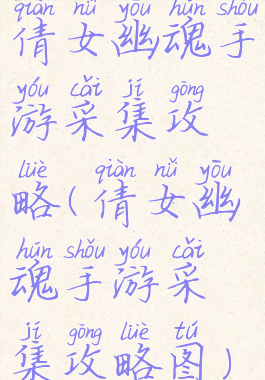 qiàn nǚ yōu hún shǒu
倩女幽魂手
yóu cǎi jí gōng
游采集攻
lüè qiàn nǚ yōu
略(倩女幽
hún shǒu yóu cǎi
魂手游采
jí gōng lüè tú
集攻略图)